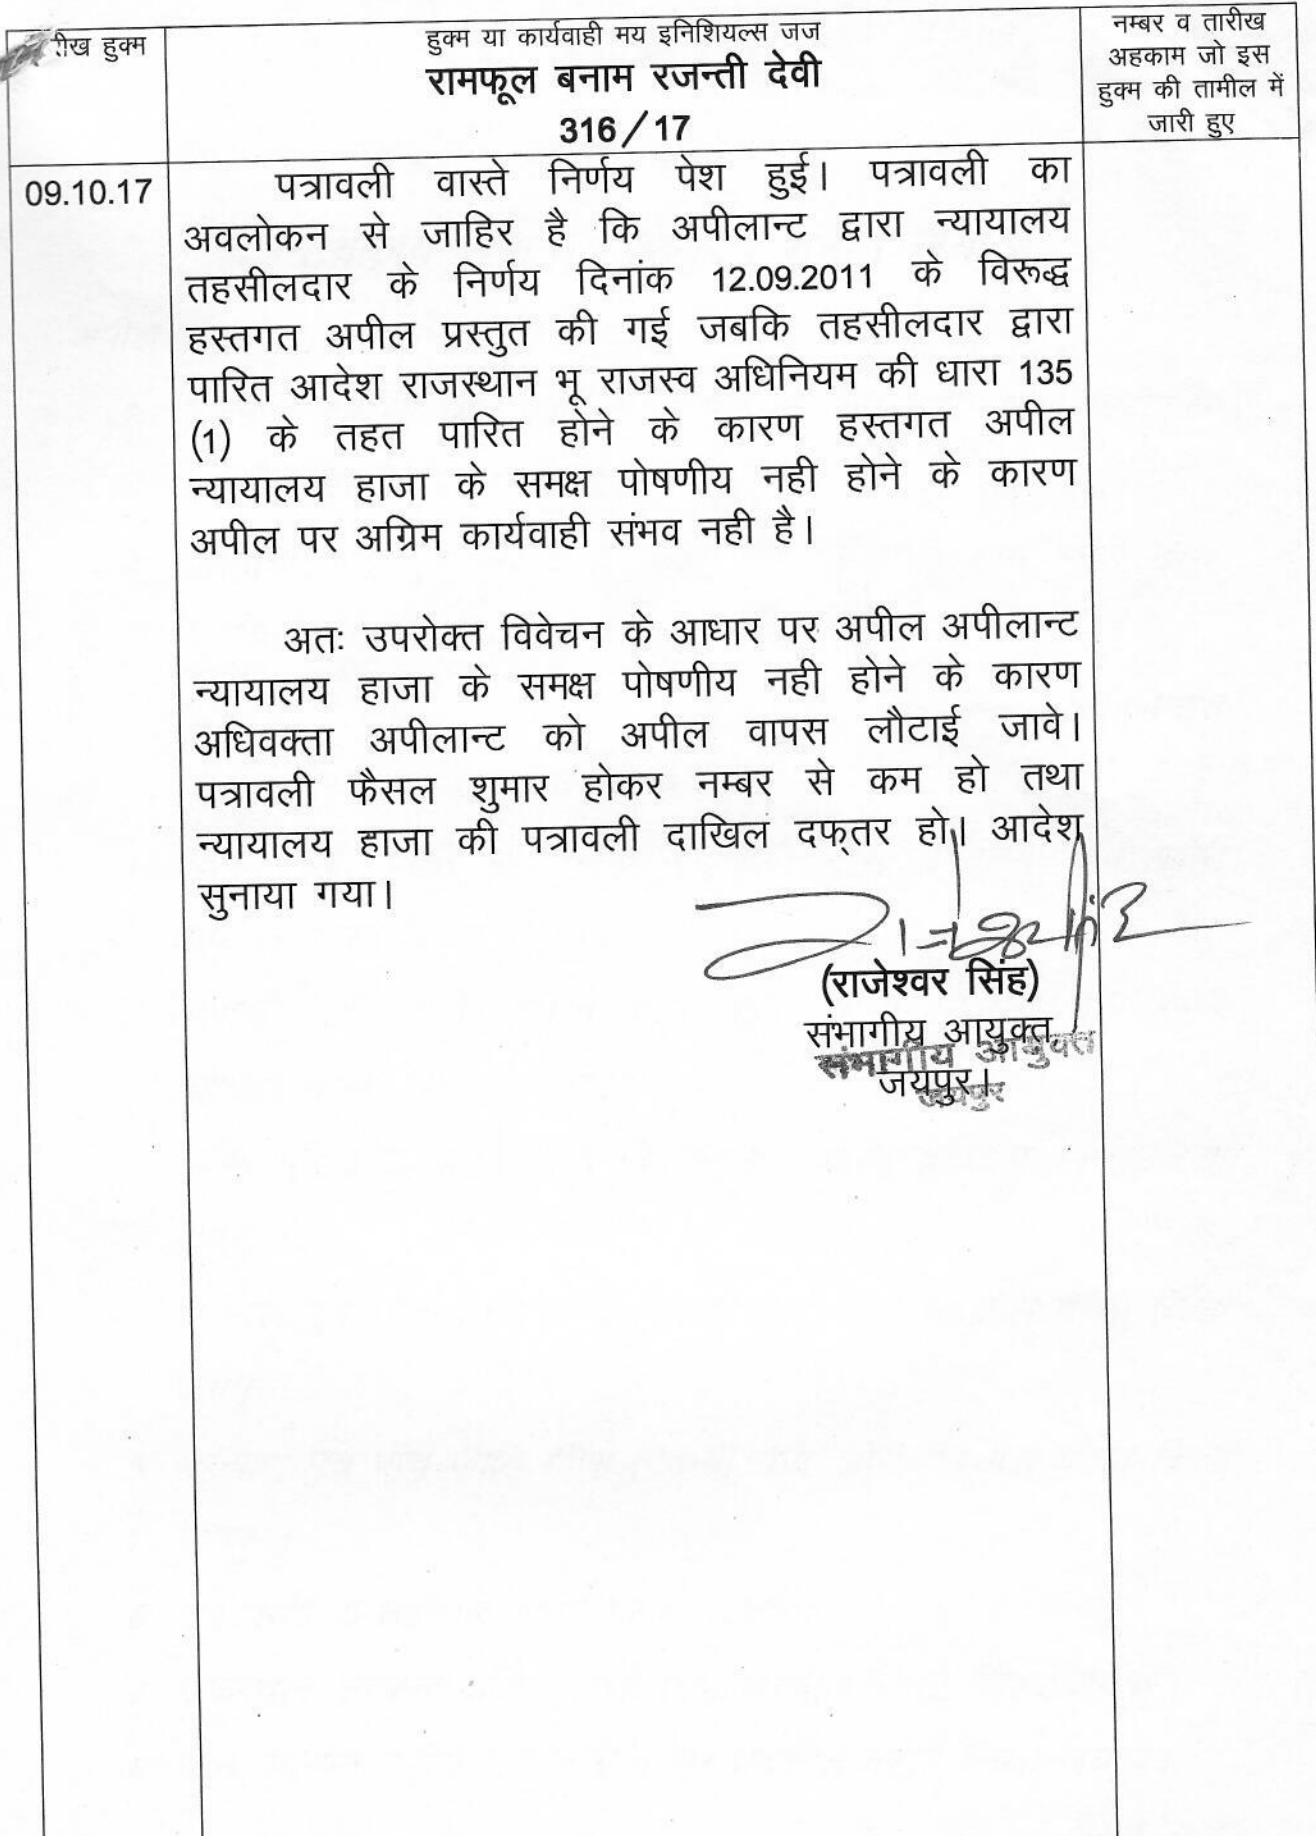 रीख हुक्म
हुक्म या कार्यवाही मय इनिशियल्स जज
रामफूल बनाम रजन्ती देवी
316/17
नम्बर व तारीख
अहकाम जो इस
हुक्म की तामील में
जारी हुए
09.10.17
पत्रावली वास्ते निर्णय पेश हुई। पत्रावली का
अवलोकन से जाहिर है कि अपीलान्ट द्वारा न्यायालय
तहसीलदार के निर्णय दिनांक 12.09.2011 के विरूद्ध
हस्तगत अपील प्रस्तुत की गई जबकि तहसीलदार द्वारा
पारित आदेश राजस्थान भू राजस्व अधिनियम की धारा 135
(1) के तहत पारित होने के कारण हस्तगत अपील
न्यायालय हाजा के समक्ष पोषणीय नही होने के कारण
अपील पर अग्रिम कार्यवाही संभव नही है।
अतः उपरोक्त विवेचन के आधार पर अपील अपीलान्ट
न्यायालय हाजा के समक्ष पोषणीय नही होने के कारण
अधिवक्ता अपीलान्ट को अपील वापस लौटाई जावे।
पत्रावली फैसल शुमार होकर नम्बर से कम हो तथा
न्यायालय हाजा की पत्रावली दाखिल दफ्तर हो। आदेश
सुनाया गया।
(राजेश्वर सिंह)
संभागीय आयुक्त
संभागीय आयुक्त
जयपुर।
जयपुर